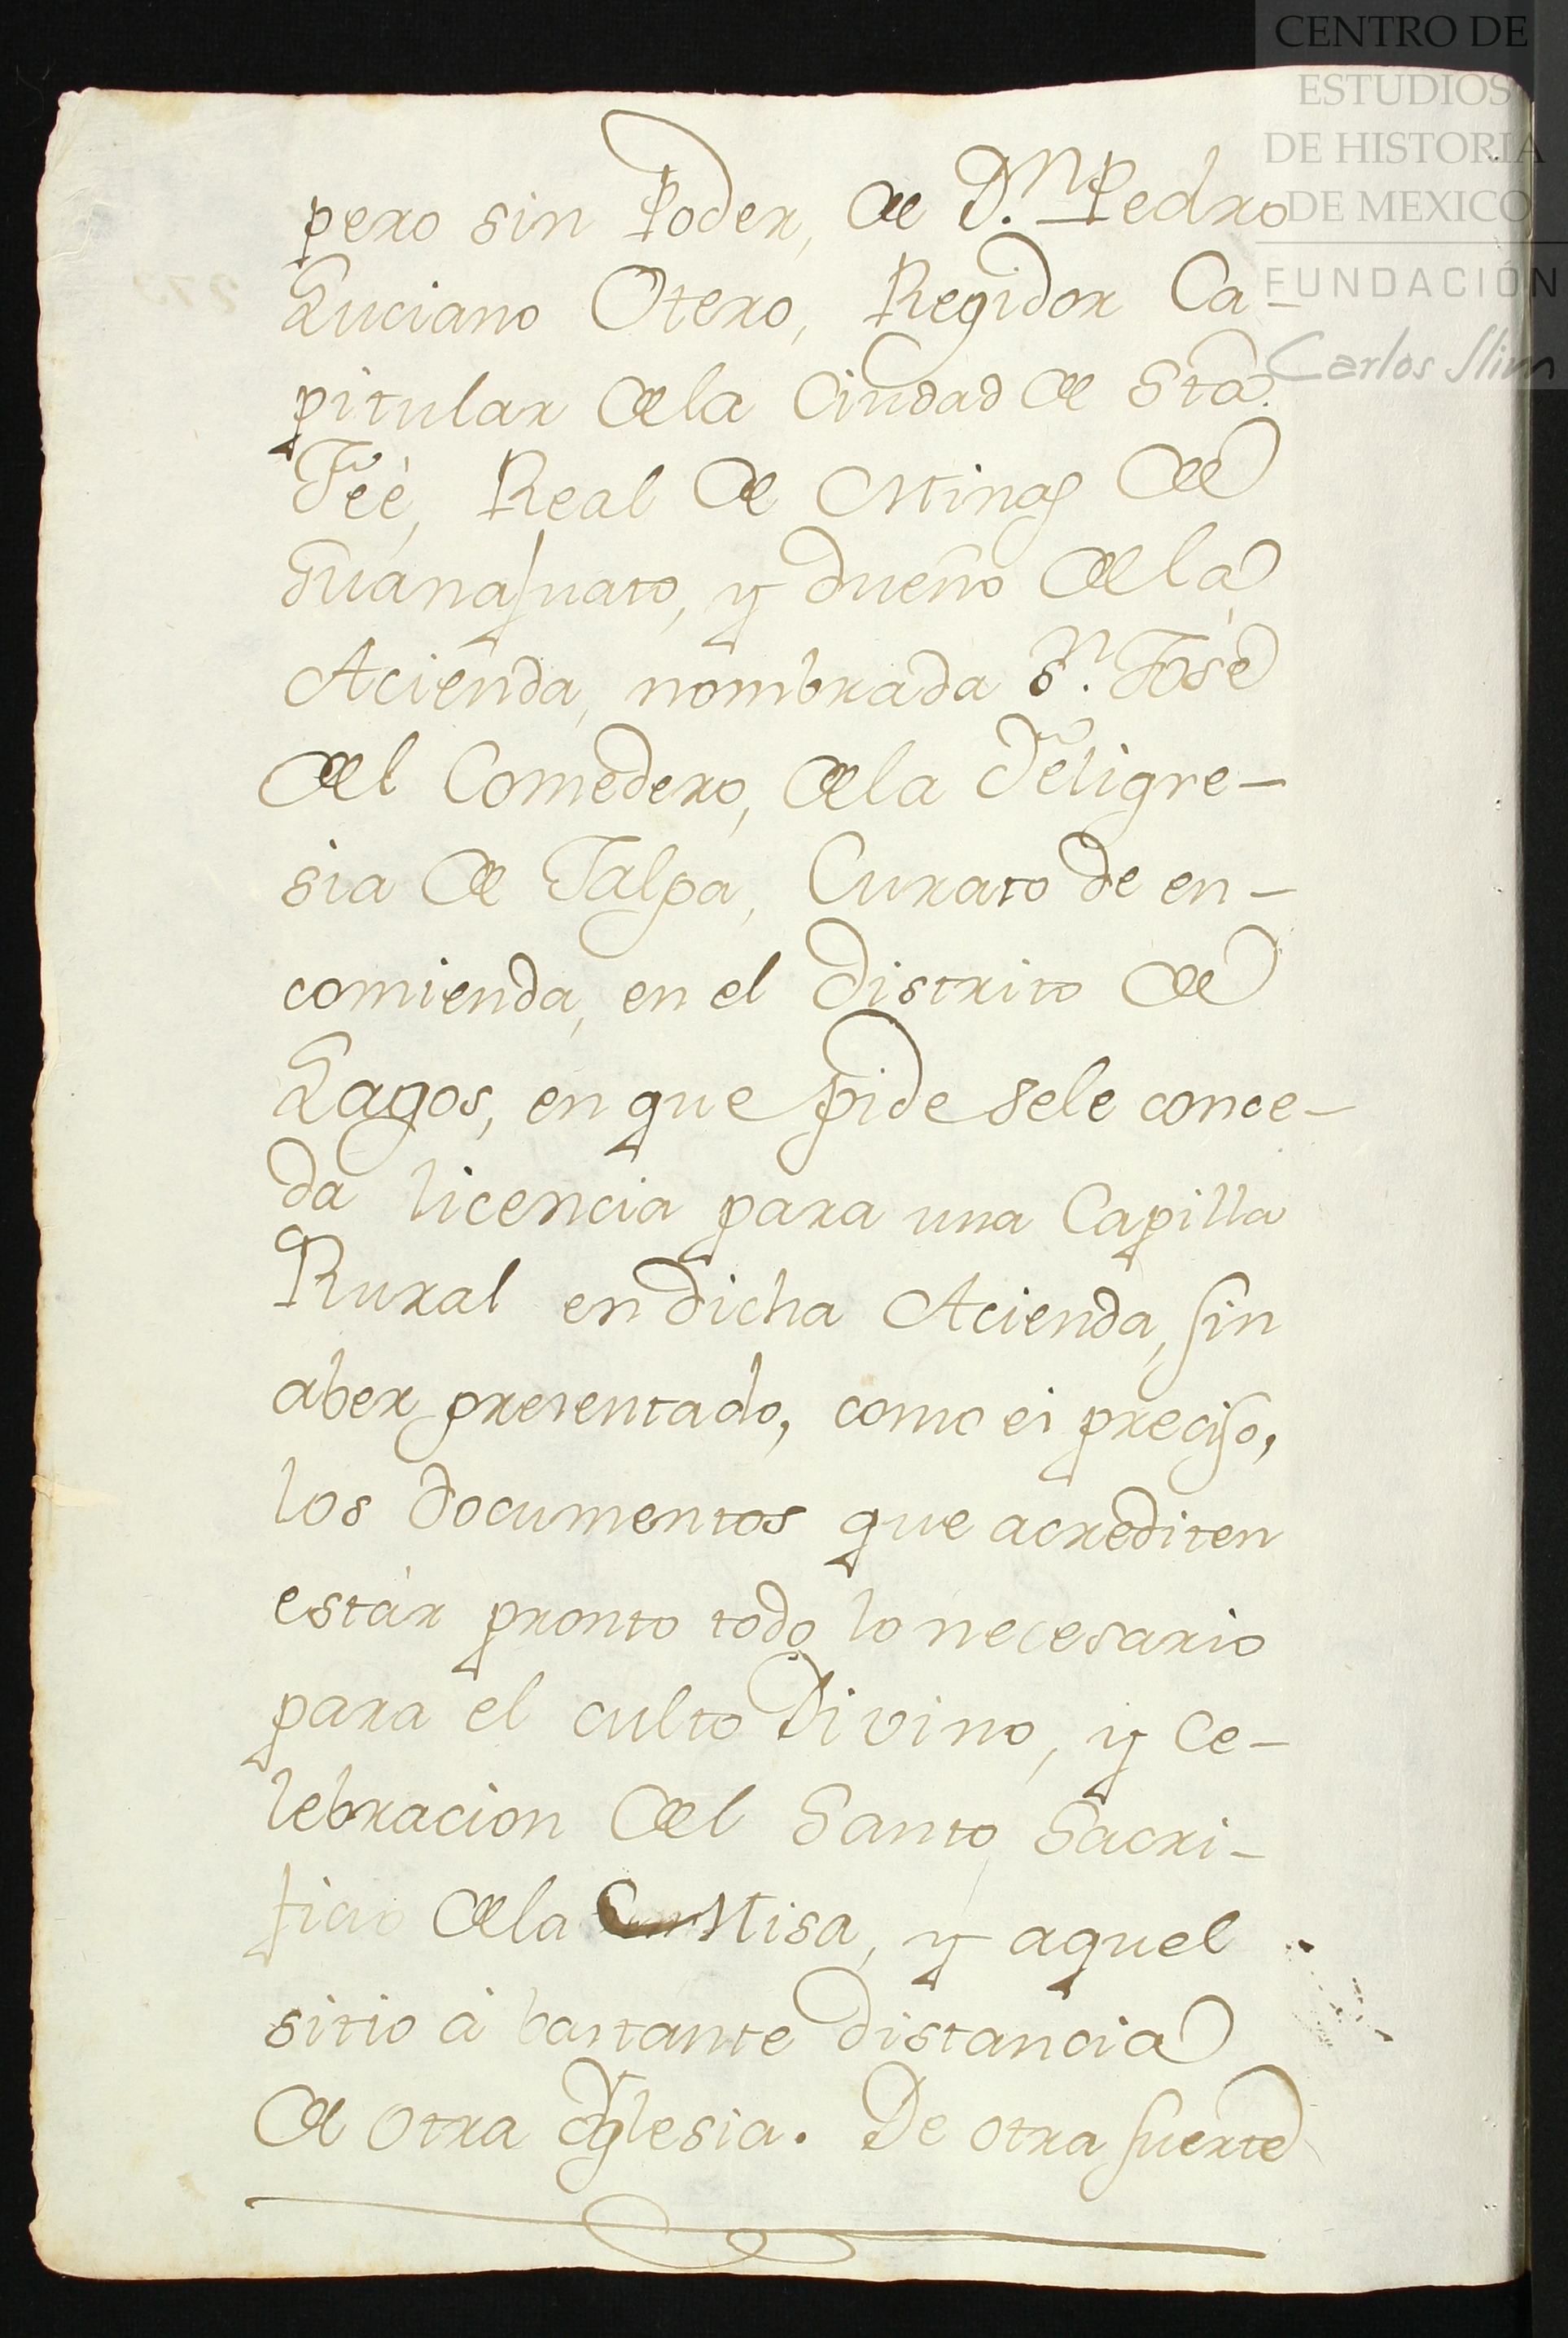 CENTRO DE
ESTUDIOS
DE HISTORIA
DE MEXICO
FUNDACIÓN
Carlos Slim
pero sin Poder, de D.n Pedro
Luciano Otero, Regidor Ca-
pitular dela Ciudad de Sta.
Feè, Real de Minas de
Guanajuato, y dueño dela
Acienda, nombrada S.n Josè
del Comedero, dela Feligre-
sia de Jalpa, Curato de en-
comienda, en el distrito de
Lagos, en que pide sele conce-
da licencia para una Capilla
Rural en dicha Acienda, sin
aber presentado, como es preciso,
los documentos que acrediten
estàr pronto todo lo necesario
para el culto Divino, y Ce-
lebracion del Santo Sacri-
ficio dela Misa, y aquel
sitio à bastante distancia
de otra Yglesia. De otra suerte